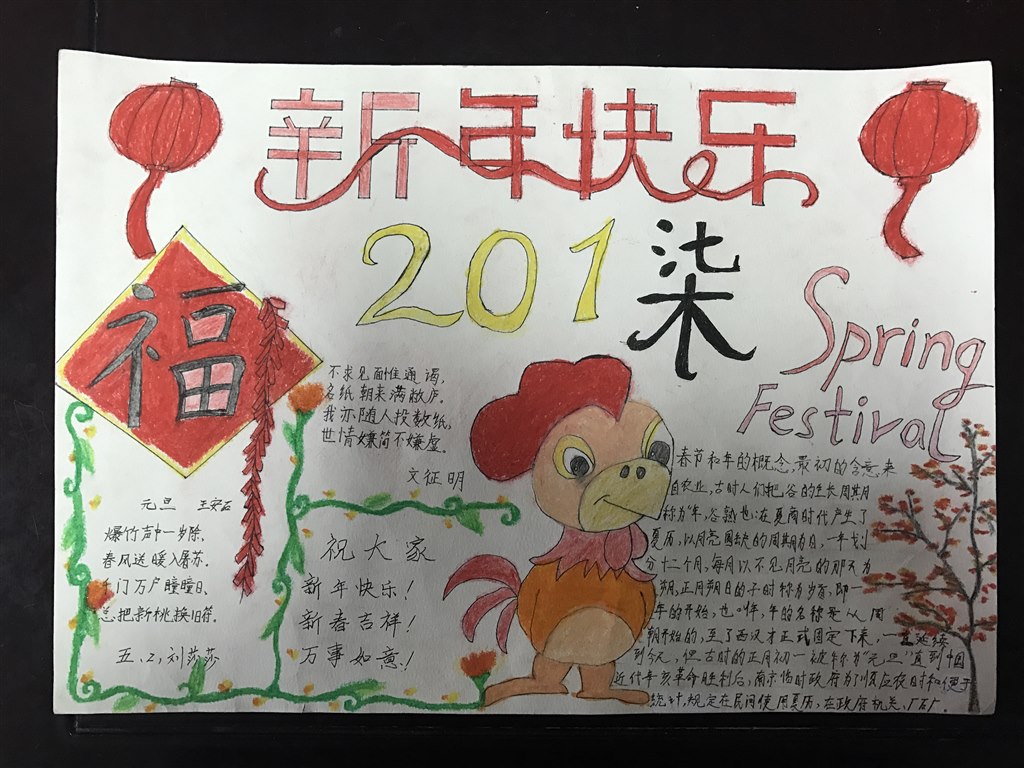 新年快乐
201柒
Spring
Festival
福
不求见面惟通谒,
名纸朝来满敝庐。
我亦随人投数纸,
世情嫌简不嫌虚。
文征明
元旦 王安石
爆竹声中一岁除,
春风送暖入屠苏.
千门万户曈曈日,
总把新桃换旧符。
五.2,刘莎莎
祝大家
新年快乐!
新春吉祥!
万事如意!
春节和年的概念,最初的含意来
自农业,古时人们把谷的生长周期
称为年,谷熟也:在夏商时代产生了
夏历,以月亮圆缺的周期为月,一年划
分十二个月,每月以不见月亮的那天为
朔,正月朔日的子时称为岁首,即一
年的开始,也叫年,年的名称是从周
朝开始的,至了西汉才正式固定下来,一直延续
到今天,但古时的正月初一被称为"元旦"直到中国
近代辛亥革命胜利后,南京临时政府为了顺应农时和便于
统计,规定在民间使用夏历,在政府机关、厂